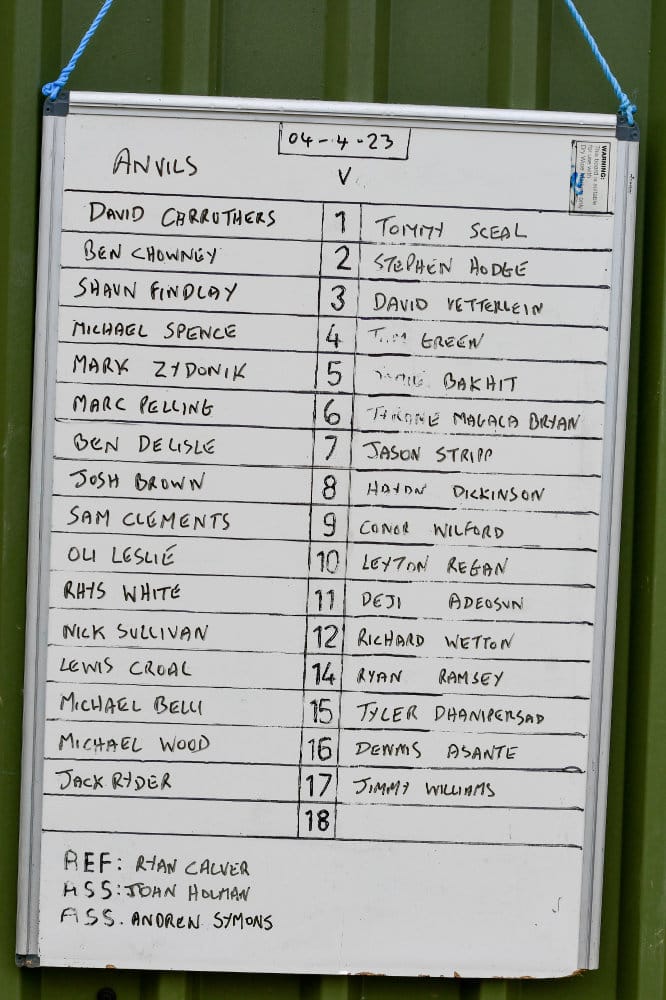 04-4-23
ANVILS V
WARNING:
This board is suitable
for use with
Dry Wipe only
DAVID CARRUTHERS 1 TOMMY SCEAL
BEN CHOWNEY 2 STEPHEN HODGE
SHAUN FINDLAY 3 DAVID VETTERLEIN
MICHAEL SPENCE 4 GREEN
MARK ZYDONIK 5 BAKHIT
MARC PELLING 6 MAGACA BRYAN
BEN DELISLE 7 JASON STRIPP
JOSH BROWN 8 HAYDN DICKINSON
SAM CLEMENTS 9 CONOR WILFORD
OLI LESLIE 10 LEYTON REGAN
RHYS WHITE 11 DEJI ADEOSUN
NICK SULLIVAN 12 RICHARD WETTON
LEWIS CROAL 14 RYAN RAMSEY
MICHAEL BELLI 15 TYLER DHANIPERSAD
MICHAEL WOOD 16 DENNIS ASANTE
JACK RYDER 17 JIMMY WILLIAMS
18
REF: RYAN CALVER
ASS: JOHN HOLMAN
ASS. ANDREW SYMONS